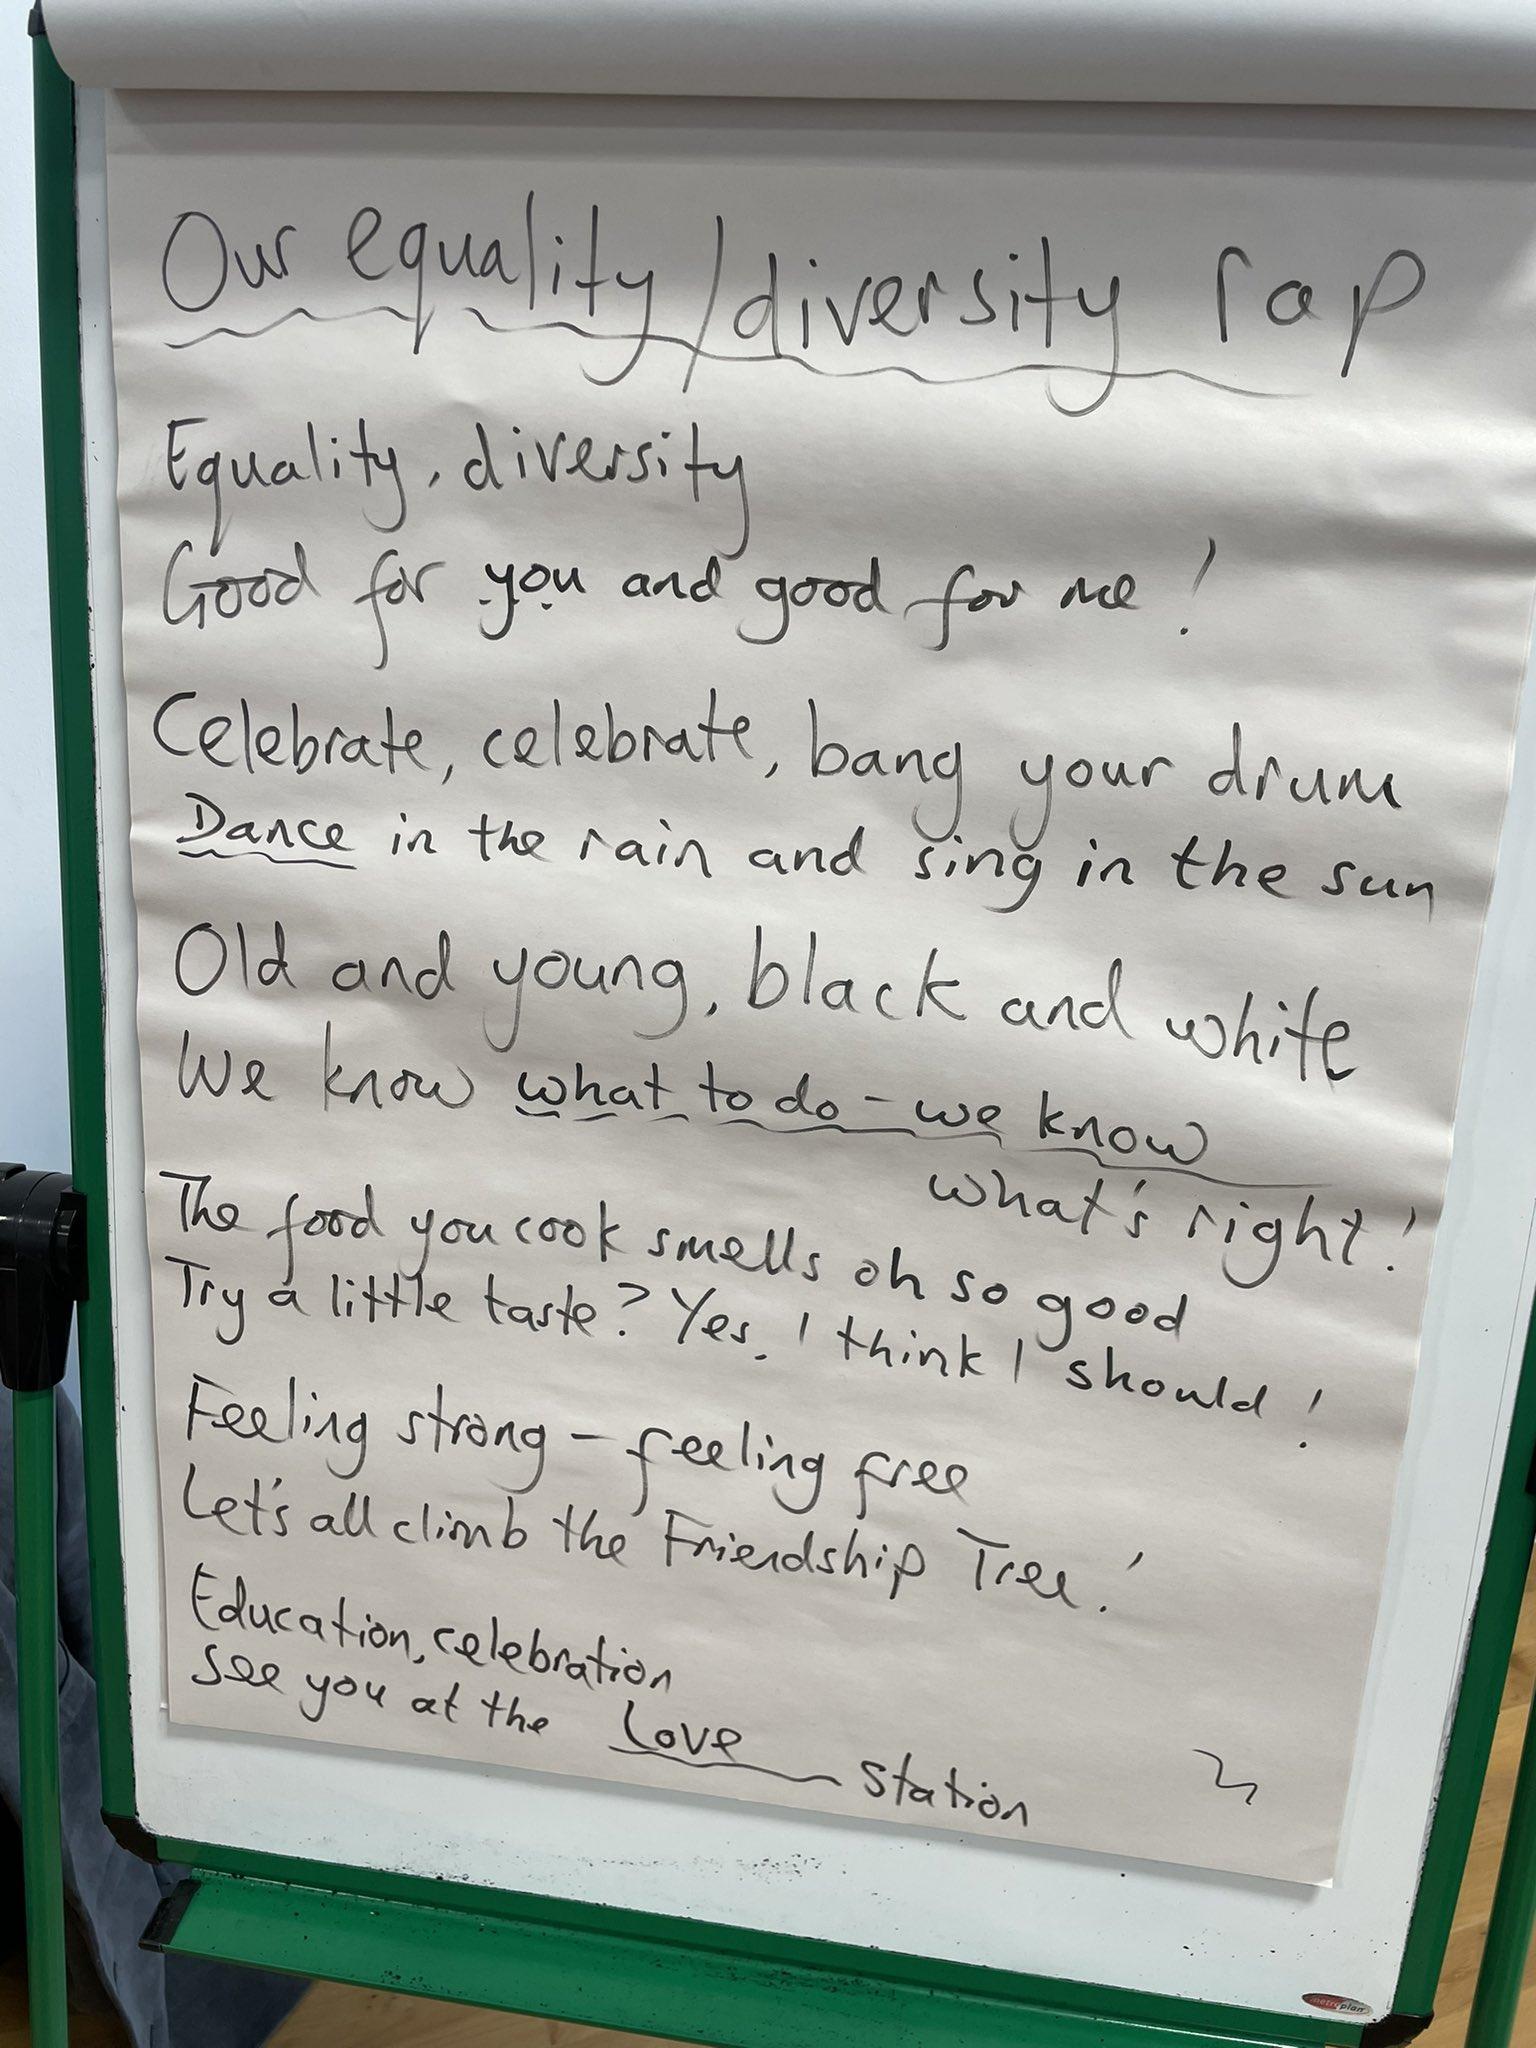 Our equality/diversity rap
Equality, diversity
Good for you and good for me!
Celebrate, celebrate, bang your drum
Dance in the rain and sing in the sun
Old and young, black and white
We know what to do - we know
what's right!
The food you cook smells oh so good
Try a little taste? Yes, I think I should!
Feeling strong - feeling free
Let's all climb the Friendship Tree!
Education, celebration
See you at the Love station
metroplan